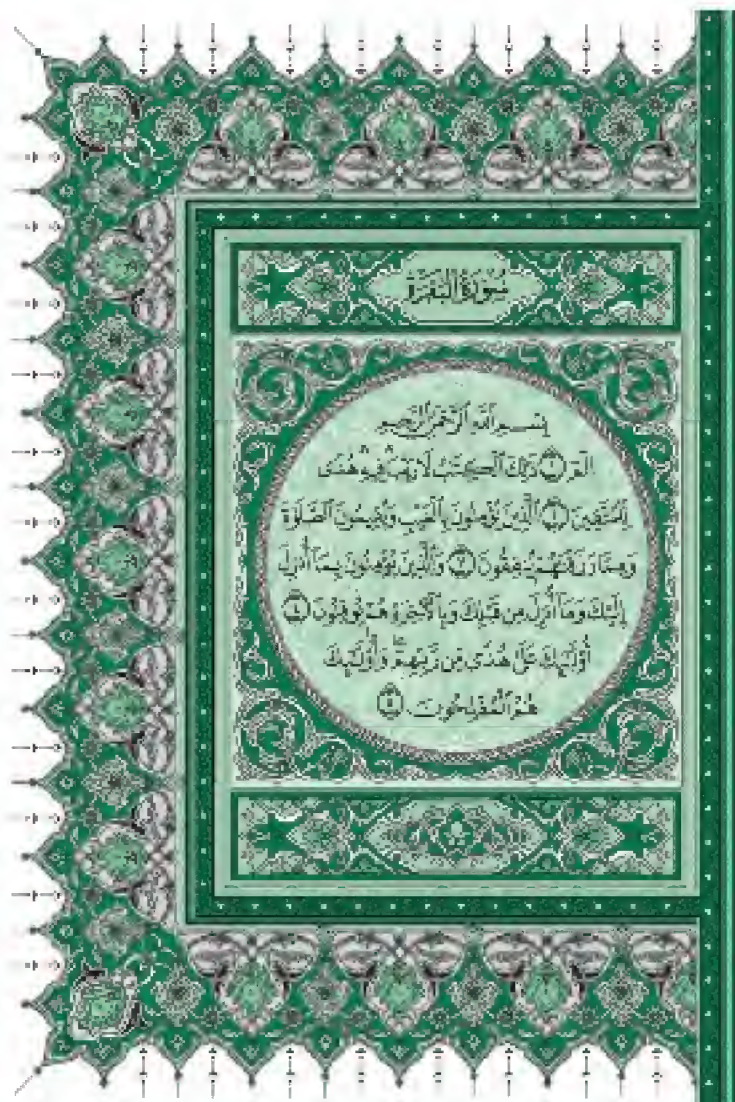 سُورَةُ البَقَرَةِ
بِسْمِ ٱللَّهِ ٱلرَّحْمَٰنِ ٱلرَّحِيمِ
الٓمٓ ١ ذَٰلِكَ ٱلْكِتَٰبُ لَا رَيْبَۛ فِيهِۛ هُدًى
لِّلْمُتَّقِينَ ٢ ٱلَّذِينَ يُؤْمِنُونَ بِٱلْغَيْبِ وَيُقِيمُونَ ٱلصَّلَوٰةَ
وَمِمَّا رَزَقْنَٰهُمْ يُنفِقُونَ ٣ وَٱلَّذِينَ يُؤْمِنُونَ بِمَآ أُنزِلَ
إِلَيْكَ وَمَآ أُنزِلَ مِن قَبْلِكَ وَبِٱلْءَاخِرَةِ هُمْ يُوقِنُونَ ٤
أُو۟لَٰٓئِكَ عَلَىٰ هُدًى مِّن رَّبِّهِمْۖ وَأُو۟لَٰٓئِكَ
هُمُ ٱلْمُفْلِحُونَ ٥